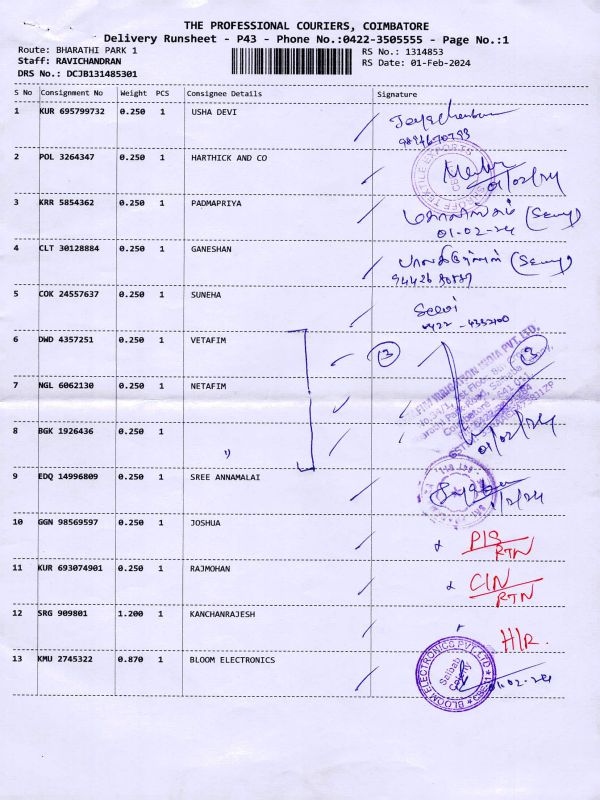 THE PROFESSIONAL COURIERS, COIMBATORE
Delivery Runsheet - P43 - Phone No.:0422-3505555 - Page No.:1
Route: BHARATHI PARK 1 RS No.: 1314853
Staff: RAVICHANDRAN RS Date: 01-Feb-2024
DRS No.: DCJB131485301
S No Consignment No Weight PCS Consignee Details Signature
1 KUR 695799732 0.250 1 USHA DEVI
2 POL 3264347 0.250 1 HARTHICK AND CO
01/02/24
3 KRR 5854362 0.250 1 PADMAPRIYA
01-02-24
4 CLT 30128884 0.250 1 GANESHAN
5 COK 24557637 0.250 1 SUNEHA
Selvi
6 DWD 4357251 0.250 1 VETAFIM 13 13
7 NGL 6062130 0.250 1 NETAFIM
8 BGK 1926436 0.250 1 "
01/02/24
9 EDQ 14996809 0.250 1 SREE ANNAMALAI
1/2/24
10 GGN 98569597 0.250 1 JOSHUA
P/S
RTN
11 KUR 693074901 0.250 1 RAJMOHAN
C/N
RTN
12 SRG 909801 1.200 1 KANCHANRAJESH
H/R.
13 KMU 2745322 0.870 1 BLOOM ELECTRONICS
BLOOM ELECTRONICS PVT.LTD
Saibaba Colony
01-02-24